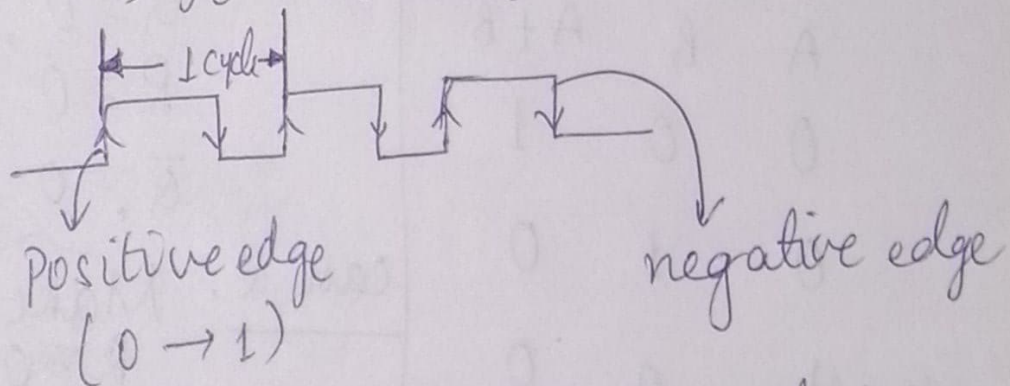 1 cycle
Positive edge
(0 → 1)
negative edge